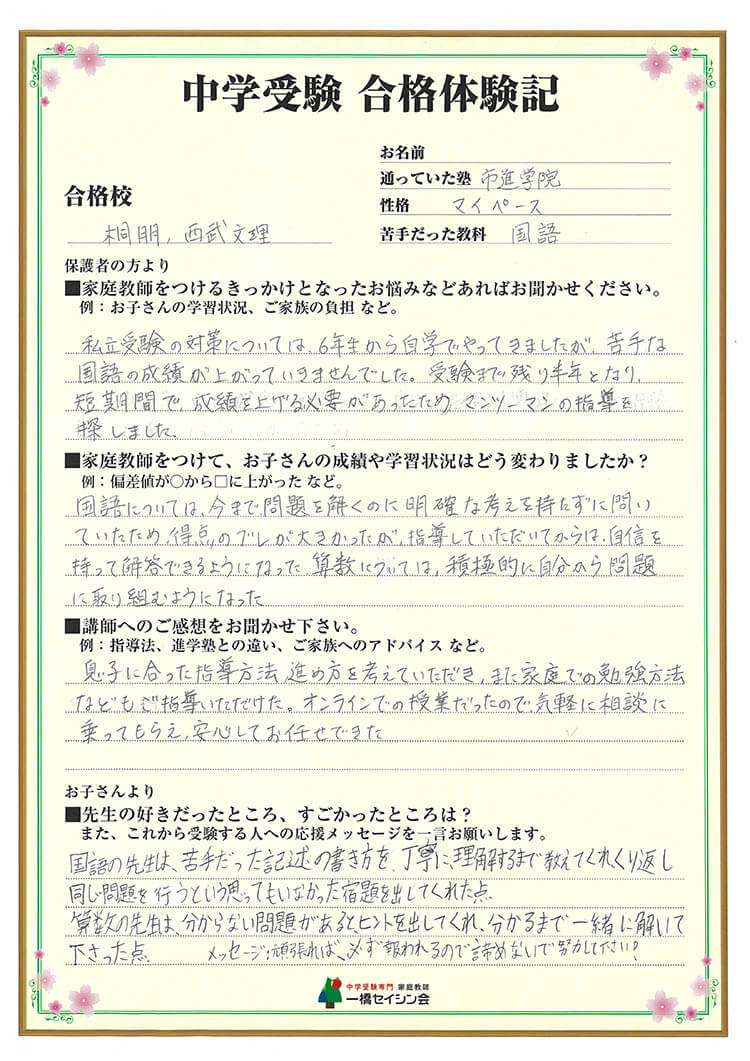 中学受験 合格体験記
お名前
通っていた塾 市進学院
合格校
性格 マイペース
桐朋, 西武文理
苦手だった教科 国語
保護者の方より
■家庭教師をつけるきっかけとなったお悩みなどあればお聞かせください。
例：お子さんの学習状況、ご家族の負担 など。
私立受験の対策については、6年生から自学でやってきましたが、苦手な
国語の成績が上がっていきませんでした。受験まで残り半年となり、
短期間で、成績を上げる必要があったため、マンツーマンの指導を
探しました、
■家庭教師をつけて、お子さんの成績や学習状況はどう変わりましたか？
例：偏差値が○から□に上がった など。
国語については、今まで問題を解くのに明確な考えを持たずに問い
ていたため、得点のブレが大きかったが、指導していただいてからは、自信を
持って解答できるようになった 算数については、積極的に自分から問題
に取り組むようになった
■講師へのご感想をお聞かせ下さい。
例：指導法、進学塾との違い、ご家族へのアドバイス など。
息子に合った指導方法、進め方を考えていただき、また家庭での勉強方法
などもご指導いただけた。オンラインでの授業だったので、気軽に相談に
乗ってもらえ、安心してお任せできた
お子さんより
■先生の好きだったところ、すごかったところは？
また、これから受験する人への応援メッセージを一言お願いします。
国語の先生は、苦手だった記述の書き方を、丁寧に、理解するまで教えてくれくり返し
同じ問題を行うという思ってもいなかった宿題を出してくれた点
算数の先生は、分からない問題があるとヒントを出してくれ、分かるまで一緒に解いて
下さった点 メッセージ:頑張れば、必ず報われるので諦めないで努力して下さい!
中学受験専門 家庭教師
一橋セイシン会